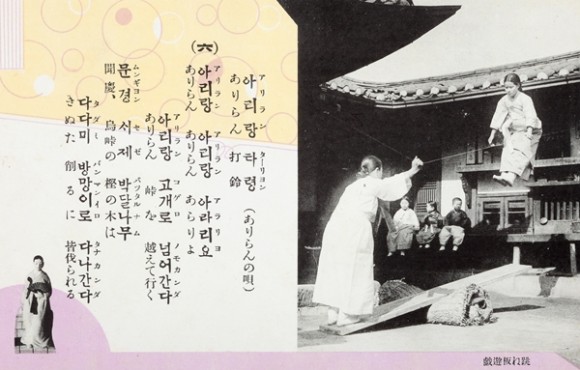 アリラン ターリヨン
아리랑 라령
ありらん 打鈴 (ありらんの唄)
(六)
アリラン アリラン アラリヨ
아리랑 아리랑 아라리요
ありらん ありらん あらりよ
アリラン コグロ ノモカンダ
아리랑 고개로 넘어간다
ありらん 峠を 越えて行く
ムンギヨン セゼ パツタルナム
문경 시제 박달나무
聞慶、鳥峠の 樫の木は
タダミ パンマンイロ タナカンダ
다다미 방망이로 다나간다
きぬた 削るに 皆伐られる
跳ね板遊戯